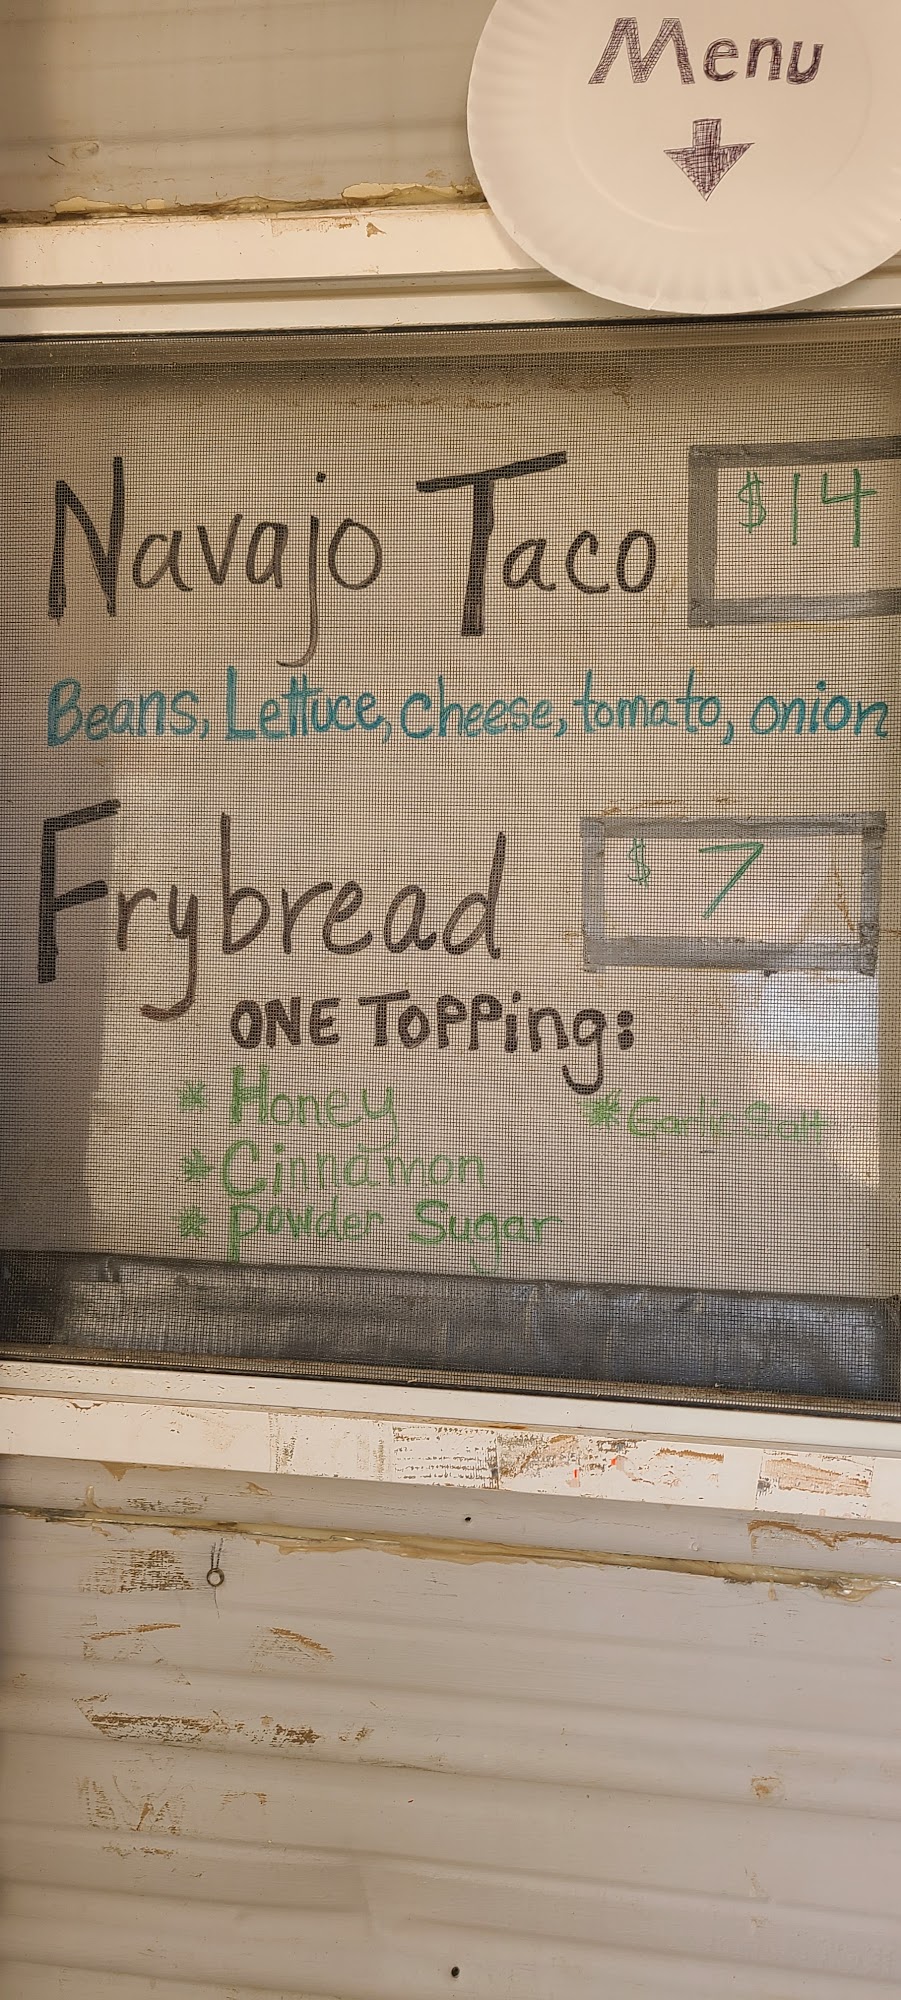 Menu
Navajo Taco $14
Beans, Lettuce, cheese, tomato, onion
Frybread $ 7
ONE TOPPing:
* Honey * Garlic Salt
* Cinnamon
* Powder Sugar